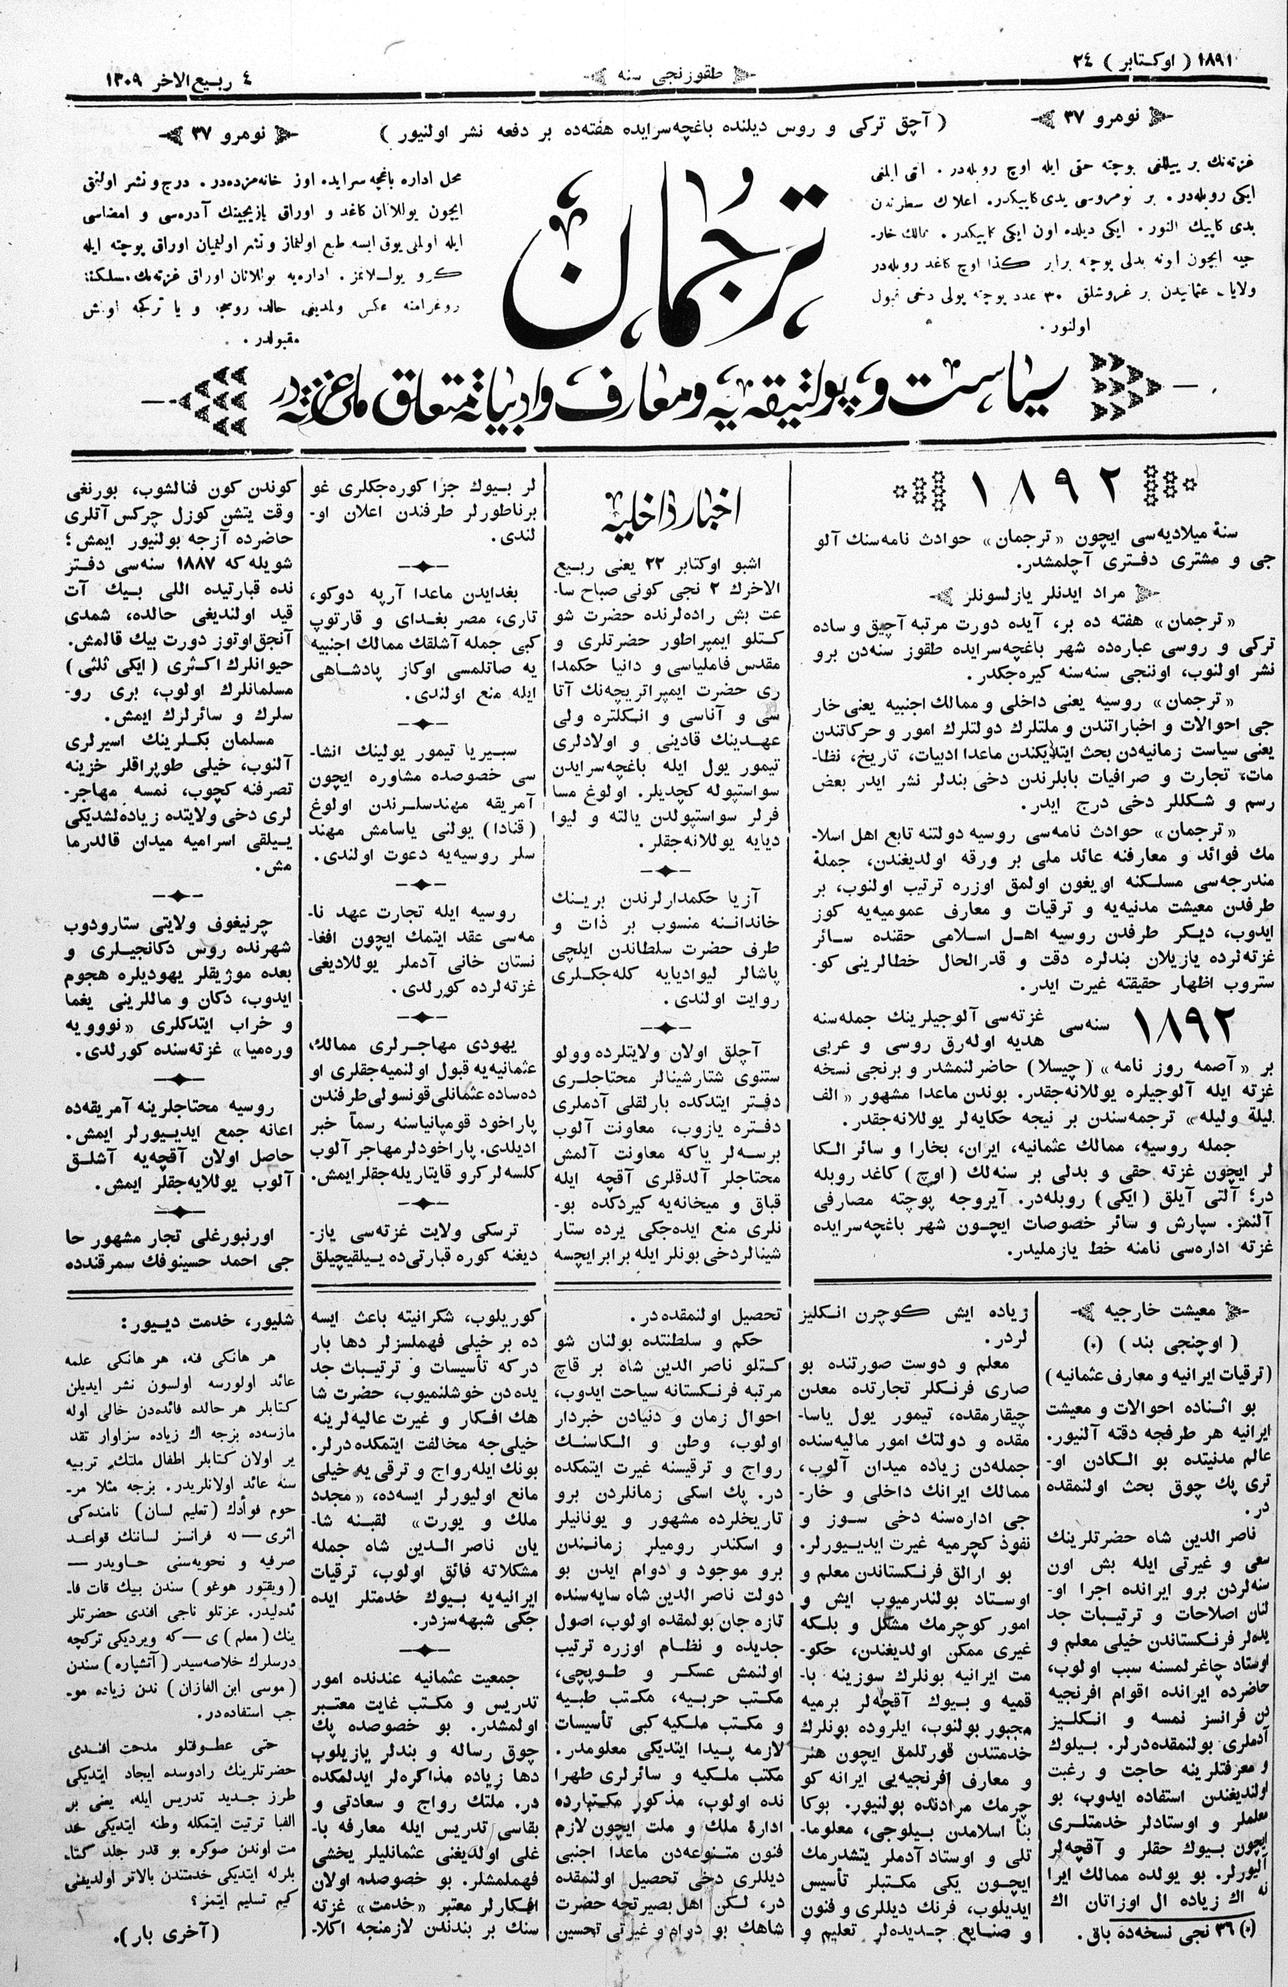 ١٨٩١ ( اوكتابر ) ٢٤
طقوزنجى سنه
٤ ربيع الاخر ١٣٠٩
نومرو ٣٧
( آچق تركى و روس ديلنده باغچه‌سرايده هفته‌ده بر دفعه نشر اولنيور )
نومرو ٣٧
غزته‌نك بر ييللغى بوچته حقى ايله اوچ روبله‌در . التى ايلغى
ايكى روبله‌در . بر نومروسى يدى كاپيكدر . اعلانك سطرندن
يدى كاپيك النور . ايكى ديلده اون ايكى كاپيكدر . ممالك خار-
جيه ايچون اونه بدلى پوچته برابر كذا اوچ كاغد روبله‌در
ولايات عثمانيدن بر غروشلق ٣٠ عدد پوچته پولى دخى قبول
اولنور .
ترجمان
محل اداره باغچه سرايده اوز خانه‌مزده‌در . درج و نشر اولنمق
ايچون يوللانان كاغد و اوراق يازيجينك آدره‌سى و امضاسى
ايله اولملى يوق ايسه طبع اولنماز و نشر اولنميان اوراق پوچته ايله
كرو يوللانمز . اداريه يوللانان اوراق غزته‌نك مسلكنه
حالده روسجه و يا تركجه اولمش
مقبولدر .
سياست و پولتيقه‌يه و معارف و ادبياته متعلق ملى غزته‌در
١٨٩٢
سنهٔ ميلاديه‌سى ايچون «ترجمان» حوادث نامه‌سنك آلو
جى و مشترى دفترى آچلمشدر.
مراد ايدنلر يازلسونلر
«ترجمان» هفته ده بر، آيده دورت مرتبه آچيق و ساده
تركى و روسى عباره‌ده شهر باغچه‌سرايده طقوز سنه‌دن برو
نشر اولنوب، اوننجى سنه‌سنه كيره‌جكدر.
«ترجمان» روسيه يعنى داخلى و ممالك اجنبيه يعنى خار
جى احوالات و اخباراتندن و ملتلرك دولتلرك امور و حركاتندن
يعنى سياست زمانيه‌دن بحث ايتديكندن ماعدا ادبيات، تاريخ، نظا-
مات، تجارت و صرافيات بابلرندن دخى بندلر نشر ايدر بعض
رسم و شكللر دخى درج ايدر.
«ترجمان» حوادث نامه‌سى روسيه دولتنه تابع اهل اسلا-
مك فوائد و معارفنه عائد ملى بر ورقه اولديغندن، جملهٔ
مندرجه‌سى مسلكنه اويغون اولمق اوزره ترتيب اولنوب، بر
طرفدن معيشت مدنيه‌يه و ترقيات و معارف عموميه‌يه كوز
ايدوب، ديكر طرفدن روسيه اهل اسلامى حقنده سائر
غزته‌لرده يازيلان بندلره دقت و قدرالحال خطالرينى كو-
ستروب اظهار حقيقته غيرت ايدر.
١٨٩٢ سنه‌سى غزته‌سى آلوجيلرينك جمله‌سنه
هديه اوله‌رق روسى و عربى
بر «آصمه روز نامه» (چيسلا) حاضرلنمشدر و برنجى نسخه
غزته ايله آلوجيلره يوللانه‌جقدر. بوندن ماعدا مشهور «الف
ليلة وليله» ترجمه‌سندن بر نيچه حكايه‌لر يوللانه‌جقدر.
جمله روسيه، ممالك عثمانيه، ايران، بخارا و سائر الكا
لر ايچون غزته حقى و بدلى بر سنه‌لك (اوچ) كاغد روبله
در؛ آلتى آيلق (ايكى) روبله‌در. آيروجه پوچته مصارفى
آلنمز. سپارش و سائر خصوصات ايچون شهر باغچه‌سرايده
غزته اداره‌سى نامنه خط يازمليدر.
اخبار داخليه
اشبو اوكتابر ٢٢ يعنى ربيع
الاخرك ٢ نجى كونى صباح سا-
عت بش راده‌لرنده حضرت شو
كتلو ايمپراطور حضرتلرى و
مقدس فاملياسى و دانيا حكمدا
رى حضرت ايمپراتريچه‌نك آتا
سى و آناسى و انكلتره ولى
عهدينك قادينى و اولادلرى
تيمور يول ايله باغچه‌سرايدن
سواستپوله كچديلر. اولوغ مسا
فرلر سواستپولدن يالته و ليوا
ديايه يوللانه‌جقلر.
آزيا حكمدارلرندن برينك
خاندانـنه منسوب بر ذات و
طرف حضرت سلطاندن ايلچى
پاشالر ليواديايه كله‌جكلرى
روايت اولندى.
آچلق اولان ولايتلرده وولو
ستنوى شتارشينالر محتاجلرى
دفتر ايتدكده بارلقلى آدملرى
دفتره يازوب، معاونت آلوب
برسه‌لر ياكه معاونت آلمش
محتاجلر آلدقلرى آقچه ايله
قباق و ميخانه‌يه كيردكده بو-
نلرى منع ايده‌جكى يرده ستار
شينالر دخى بونلر ايله برابر ايچسه
لر بيوك جزا كوره‌جكلرى غو
برناطورلر طرفندن اعلان او-
لندى.
بغدايدن ماعدا آرپه دوكو،
تارى، مصر بغداى و قارتوپ
كبى جمله آشلقك ممالك اجنبيه
يه صاتلمسى اوكاز پادشاهى
ايله منع اولندى.
سبيريا تيمور يولينك انشا-
سى خصوصده مشاوره ايچون
آمريقه مهندسلرندن اولوغ
(قنادا) يولنى ياسامش مهند
سلر روسيه‌يه دعوت اولندى.
روسيه ايله تجارت عهد نا-
مه‌سى عقد ايتمك ايچون افغا-
نستان خانى آدملر يوللاديغى
غزته‌لرده كورلدى.
يهودى مهاجرلرى ممالك
عثمانيه‌يه قبول اولنميه‌جقلرى او
ده‌ساده عثمانلى قونسولى طرفندن
پاراخود قومپانياسنه رسماً خبر
اديلدى. پاراخودلر مهاجر آلوب
كلسه‌لر كرو قايتاريله‌جقلر ايمش.
ترسكى ولايت غزته‌سى ياز-
ديغنه كوره قبارتى‌ده ييلقيچيلق
كوندن كون فنالشوب، بورنغى
وقت يتشن كوزل چركس آتلرى
حاضرده آزجه بولنيور ايمش؛
شويله كه ١٨٨٧ سنه‌سى دفتر
نده قبارتيده اللى بيك آت
قيد اولنديغى حالده، شمدى
آنجق اوتوز دورت بيك قالمش.
حيوانلرك اكثرى (ايكى ثلثى)
مسلمانلرك اولوب، برى رو-
سلرك و سائرلرك ايمش.
مسلمان بكلرينك اسيرلرى
آلنوب، خيلى طوپراقلر خزينه
تصرفنه كچوب، نمسه مهاجر-
لرى دخى ولايتده زياده‌لشديكى
ييلقى اسراميه ميدان قالدرما
مش.
چرنيغوف ولايتى ستارودوب
شهرنده روس دكانجيلرى و
بعده موژيقلر يهوديلره هجوم
ايدوب، دكان و ماللرينى يغما
و خراب ايتدكلرى «نوويه
وره‌ميا» غزته‌سنده كورلدى.
روسيه محتاجلرينه آمريقه‌ده
اعانه جمع ايديورلر ايمش.
حاصل اولان آقچه‌يه آشلق
آلوب يوللايه‌جقلر ايمش.
اورنبورغلى تجار مشهور حا
جى احمد حسينوفك سمرقندده
معيشت خارجيه
(اوچنجى بند) (٠)
(ترقيات ايرانيه و معارف عثمانيه)
بو اثناده احوالات و معيشت
ايرانيه هر طرفجه دقته آلنيور.
عالم مدنيتده بو الكادن او-
ترى پك چوق بحث اولنمقده
در.
ناصر الدين شاه حضرتلرينك
سعى و غيرتى ايله بش اون
سنه‌لردن برو ايرانده اجرا او-
لنان اصلاحات و ترتيبات جد
يده‌لر فرنكستاندن خيلى معلم و
اوستاد چاغرلمسنه سبب اولوب،
حاضرده ايرانده اقوام افرنجيه
دن فرانسز نمسه و انكليز
آدملرى بولنمقده‌درلر. بيلوك
و معرفتلرينه حاجت و رغبت
اولنديغندن استفاده ايدوب، بو
معلملر و اوستادلر خدمتلرى
ايچون بيوك حقلر و آقچه‌لر
آليورلر. بو يولده ممالك ايرا
نه اك زياده ال اوزاتان اك
(٠) ٣٦ نجى نسخه‌ده باق.
زياده ايش كوچرن انكليز
لردر.
معلم و دوست صورتنده بو
صارى فرنكلر تجارتده معدن
چيقارمقده، تيمور يول ياسا-
مقده و دولتك امور ماليه‌سنده
جمله‌دن زياده ميدان آلوب،
ممالك ايرانك داخلى و خار-
جى اداره‌سنه دخى سوز و
نفوذ كچرميه غيرت ايديورلر.
بو ارالق فرنكستاندن معلم و
اوستاد بولندرميوب ايش و
امور كوچرمك مشكل و بلكه
غيرى ممكن اولديغندن، حكو-
مت ايرانيه بونلرك سوزينه با-
قميه و بيوك آقچه‌لر برميه
مجبور بولنوب، ايلروده بونلرك
خدمتندن قورتلمق ايچون هنر
و معارف افرنجيه‌يى ايرانه كو
چرمك مرادنده بولنيور. بوكا
بناً اسلامدن بيلوجى، معلوما-
تلى و اوستاد آدملر يتشدرمك
ايچون يكى مكتبلر تأسيس
ايديلوب، فرنك ديللرى و فنون
و صنايع جديده‌لر تعليم و
تحصيل اولنمقده در.
حكم و سلطنتده بولنان شو
كتلو ناصر الدين شاه بر قاچ
مرتبه فرنكستانه سياحت ايدوب،
احوال زمان و دنيادن خبردار
اولوب، وطن و الكاسنك
رواج و ترقيسنه غيرت ايتمكده
در. پك اسكى زمانلردن برو
تاريخلرده مشهور و يونانيلر
و اسكندر روميلر زمانندن
برو موجود و دوام ايدن بو
دولت ناصر الدين شاه سايه‌سنده
تازه جان بولمقده اولوب، اصول
جديده و نظام اوزره ترتيب
اولنمش عسكر و طوپچى،
مكتب حربيه، مكتب طبيه
و مكتب ملكيه كبى تأسيسات
لازمه پيدا ايتديكى معلومدر.
مكتب ملكيه و سائرلرى طهرا
نده اولوب، مذكور مكتبلرده
ادارهٔ ملك و ملت ايچون لازم
فنون متنوعه‌دن ماعدا اجنبى
ديللرى دخى تحصيل اولنمقده
در، لكن اهل بصيرتجه حضرت
شاهك بو درام و غيرتى تحسين
كوريلوب، شكرانيته باعث ايسه
ده بر خيلى فهملسزلر دها بار
دركه تأسيسات و ترتيبات جد
يده‌دن خوشلنميوب، حضرت شا
هك افكار و غيرت عاليه‌لرينه
خيلى‌جه مخالفت ايتمكده‌درلر.
بونك ايله رواج و ترقى يه خيلى
مانع اوليورلر ايسه‌ده، «مجدد
ملك و يورت» لقبنه شا-
يان ناصر الدين شاه جمله
مشكلاته فائق اولوب، ترقيات
ايرانيه‌يه بيوك خدمتلر ايده
جكى شبهه‌سزدر.
جمعيت عثمانيه عندنده امور
تدريس و مكتب غايت معتبر
اولمشدر. بو خصوصده پك
چوق رساله و بندلر يازيلوب
دها زياده مذاكره‌لر ايدلمكده
در. ملتك رواج و سعادتى و
بقاسى تدريس ايله معارفه با-
غلى اولديغنى عثمانليلر يخشى
فهملمشلر. بو خصوصده اولان
افكارلر معتبر «خدمت» غزته
سنك بر بندندن لازمنجه اكلا-
شليور، خدمت ديـيور:
هر هانكى فنه، هر هانكى علمه
عائد اولورسه اولسون نشر ايديلن
كتابلر هر حالده فائده‌دن خالى اوله
مازسه‌ده بزجه اك زياده سزاوار تقد
ير اولان كتابلر اطفال ملتك تربيه
سنه عائد اولانلريدر. بزجه مثلا مر-
حوم فوآدك (تعليم لسان) نامنده‌كى
اثرى — نه فرانسز لسانك قواعد
صرفيه و نحويه‌سنى حاويدر —
(ويقتور هوغو) سندن بيك قات فا-
ئده‌ليدر. عزتلو ناجى افندى حضرتلر
ينك (معلم) ى — كه ويرديكى تركچه
درسلرك خلاصه‌سيدر (آتشپاره) سندن
(موسى ابن الغازان) ندن زياده مو-
جب استفاده‌در.
حتى عطوفتلو مدحت افندى
حضرتلرينك رادوسده ايجاد ايتديكى
طرز جديد تدريس ايله، يعنى بر
الفبا ترتيب ايتمكله وطنه ايتديكى خد
مت اوندن صوكره بو قدر جلد كتا-
بلرله ايتديكى خدمتندن بالاتر اولديغنى
كيم تسليم ايتمز؟
(آخرى بار).